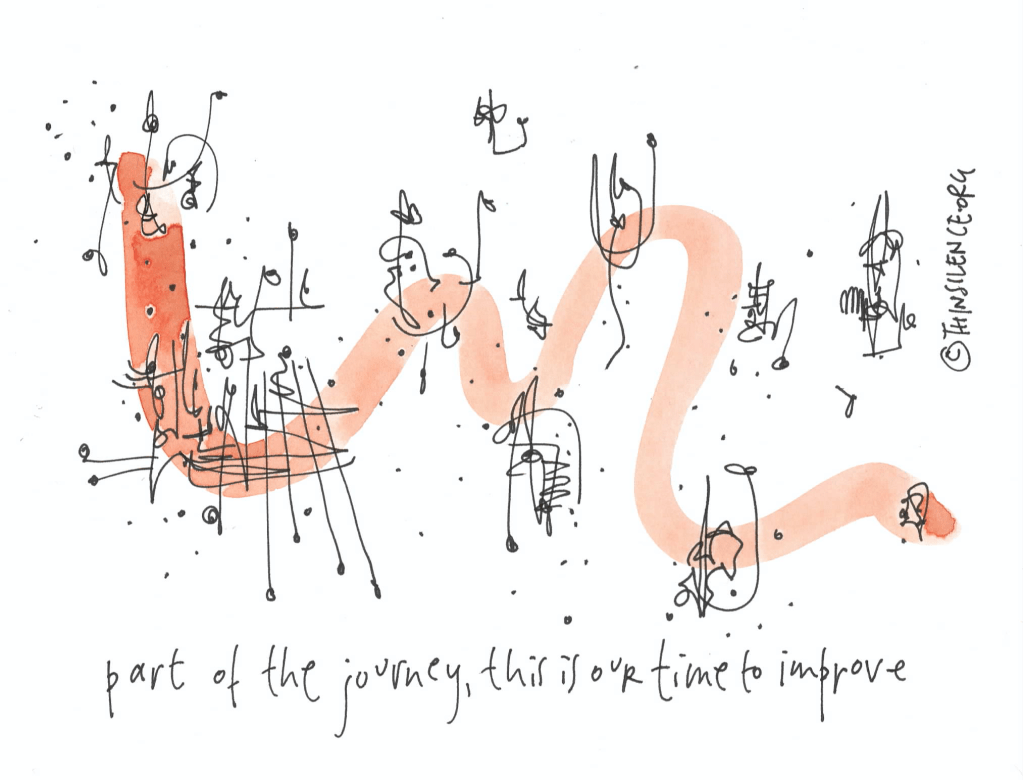 ©THINSILENCE.ORG
part of the journey, this is our time to improve